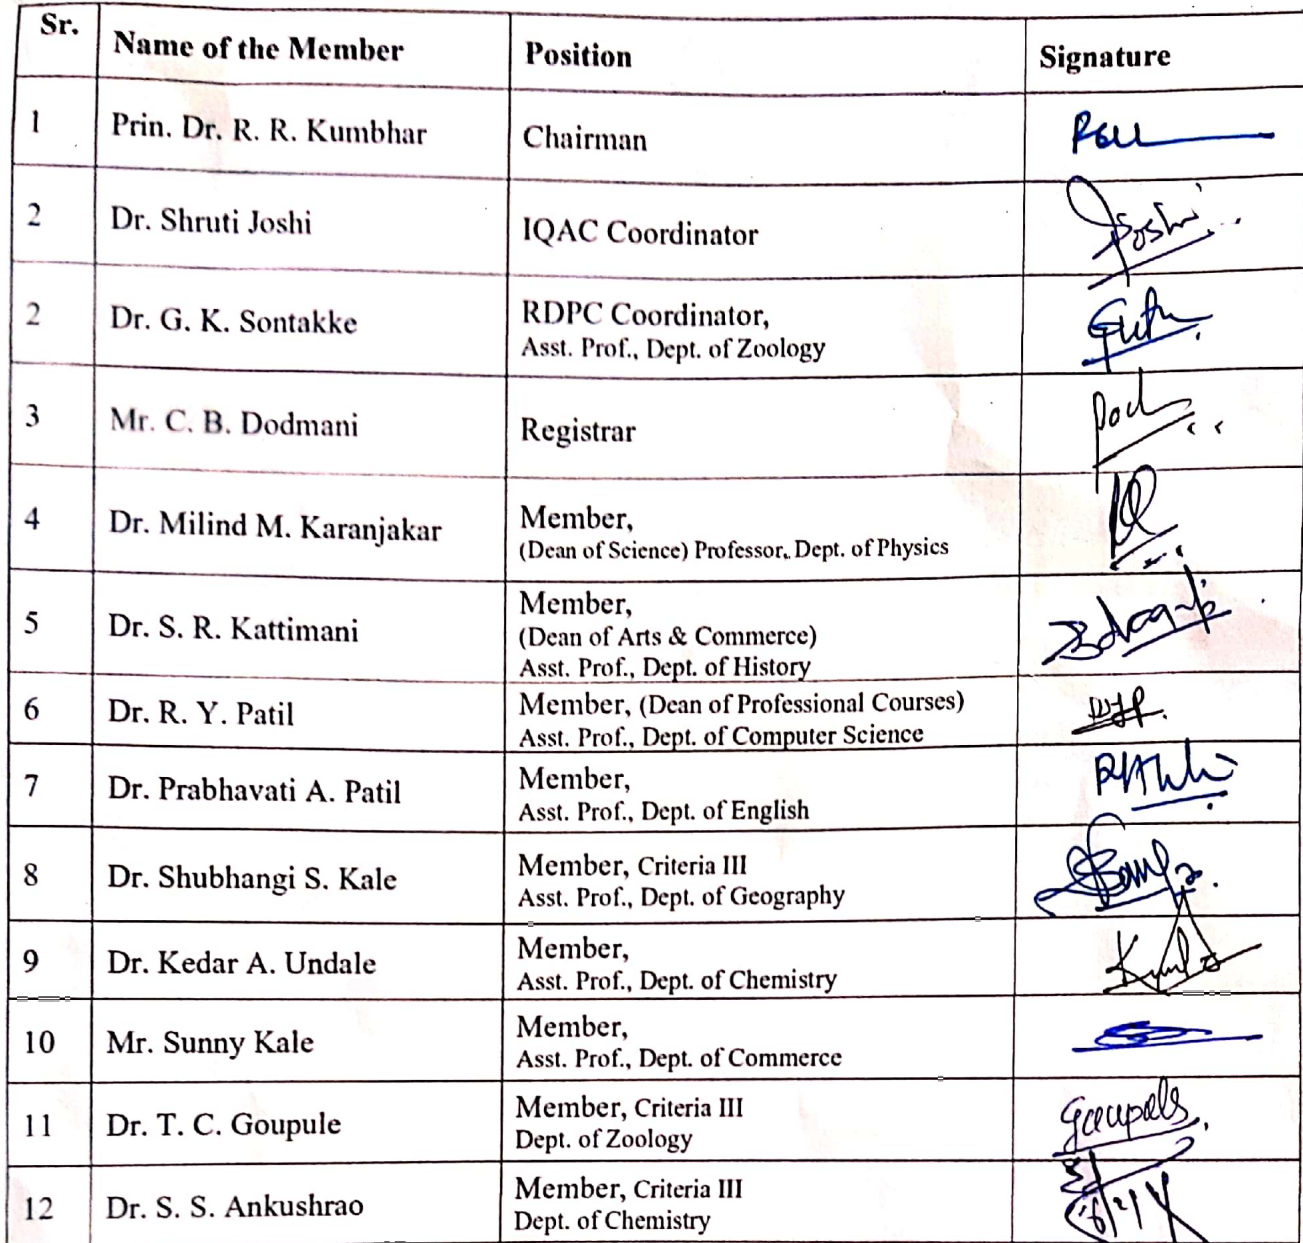 Sr. Name of the Member Position Signature
1 Prin. Dr. R. R. Kumbhar Chairman
2 Dr. Shruti Joshi IQAC Coordinator Joshi
2 Dr. G. K. Sontakke RDPC Coordinator,
Asst. Prof., Dept. of Zoology
3 Mr. C. B. Dodmani Registrar
4 Dr. Milind M. Karanjakar Member,
(Dean of Science) Professor, Dept. of Physics
5 Dr. S. R. Kattimani Member,
(Dean of Arts & Commerce)
Asst. Prof., Dept. of History
6 Dr. R. Y. Patil Member, (Dean of Professional Courses)
Asst. Prof., Dept. of Computer Science
7 Dr. Prabhavati A. Patil Member,
Asst. Prof., Dept. of English
8 Dr. Shubhangi S. Kale Member, Criteria III
Asst. Prof., Dept. of Geography
9 Dr. Kedar A. Undale Member,
Asst. Prof., Dept. of Chemistry
10 Mr. Sunny Kale Member,
Asst. Prof., Dept. of Commerce
11 Dr. T. C. Goupule Member, Criteria III
Dept. of Zoology
12 Dr. S. S. Ankushrao Member, Criteria III
Dept. of Chemistry